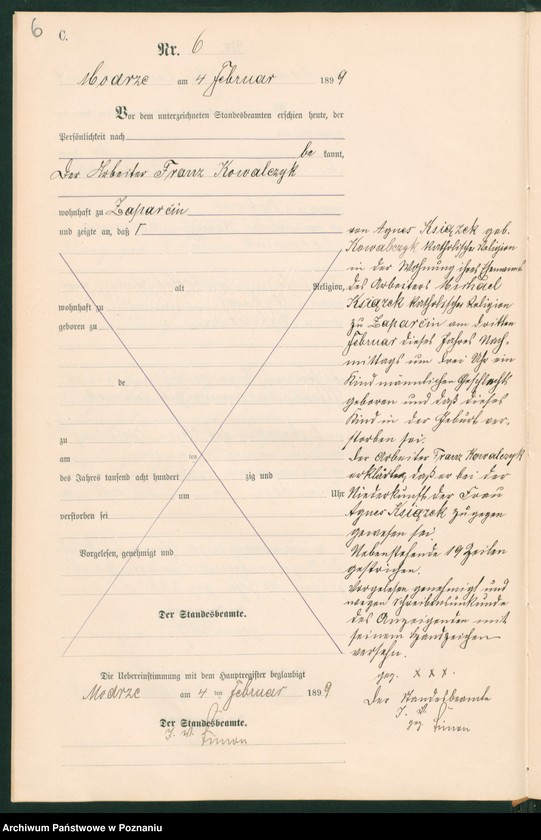 6
C.
Nr. 6
Modrze am 4 Februar 1899
Vor dem unterzeichneten Standesbeamten erschien heute, der
Persönlichkeit nach
be kannt,
Der Arbeiter Franz Kowalczyk
wohnhaft zu Zaparćin
und zeigte an, daß Γ
alt Religion,
wohnhaft zu
geboren zu
de
zu
am ten
des Jahres tausend acht hundert zig und
um Uhr
verstorben sei
Vorgelesen, genehmigt und
Der Standesbeamte.
von Agnes Książek geb.
Kowalczyk katholische Religion
in der Wohnung ihres Ehemanns
des Arbeiters Michael
Książek katholischer Religion
zu Zaparćin am dritten
Februar dieses Jahres Nach-
mittags um drei Uhr ein
Kind männlichen Geschlechts
geboren und daß dieses
Kind in der Geburt ver-
storben sei.
Der Arbeiter Franz Kowalczyk
erklärte, daß er bei der
Niederkunft der Frau
Agnes Książek zugegen
gewesen sei.
Nebenstehende 19 Zeilen
gestrichen.
Vorgelesen genehmigt und
wegen Schreibensunkunde
des Anzeigenden mit
seinem Handzeichen
versehn.
gez. x x x.
Der Standesbeamte
J. V.
gez. Simon
Die Uebereinstimmung mit dem Hauptregister beglaubigt
Modrze am 4 ten Februar 1899
Der Standesbeamte.
J. V.
Simon
Archiwum Państwowe w Poznaniu